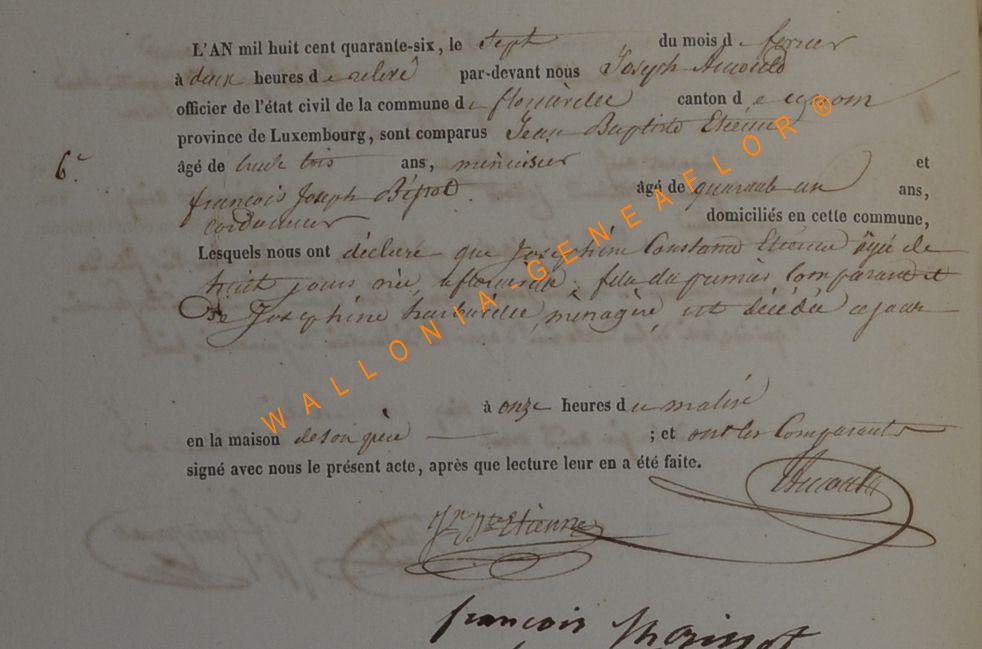 L'AN mil huit cent quarante-six, le sept du mois de fevrier
à deux heures de relevé par-devant nous Joseph Arnould
officier de l'état civil de la commune de florenville canton de
province de Luxembourg, sont comparus Jean Baptiste Etienne
6e âgé de trente trois ans, menuisier et
françois Joseph âgé de quarante un ans,
cordonnier domiciliés en cette commune,
Lesquels nous ont déclaré que Joséphine Constance Etienne âgé de
huit jours née, a , fille du premier Comparant et
de Joséphine , ménagère, est décédée ce jour
à onze heures du matin
en la maison de son père ; et ont les Comparants
signé avec nous le présent acte, après que lecture leur en a été faite.
Arnould
Jn Bte Etienne
françois
WALLONIA-GENEAFLOR®